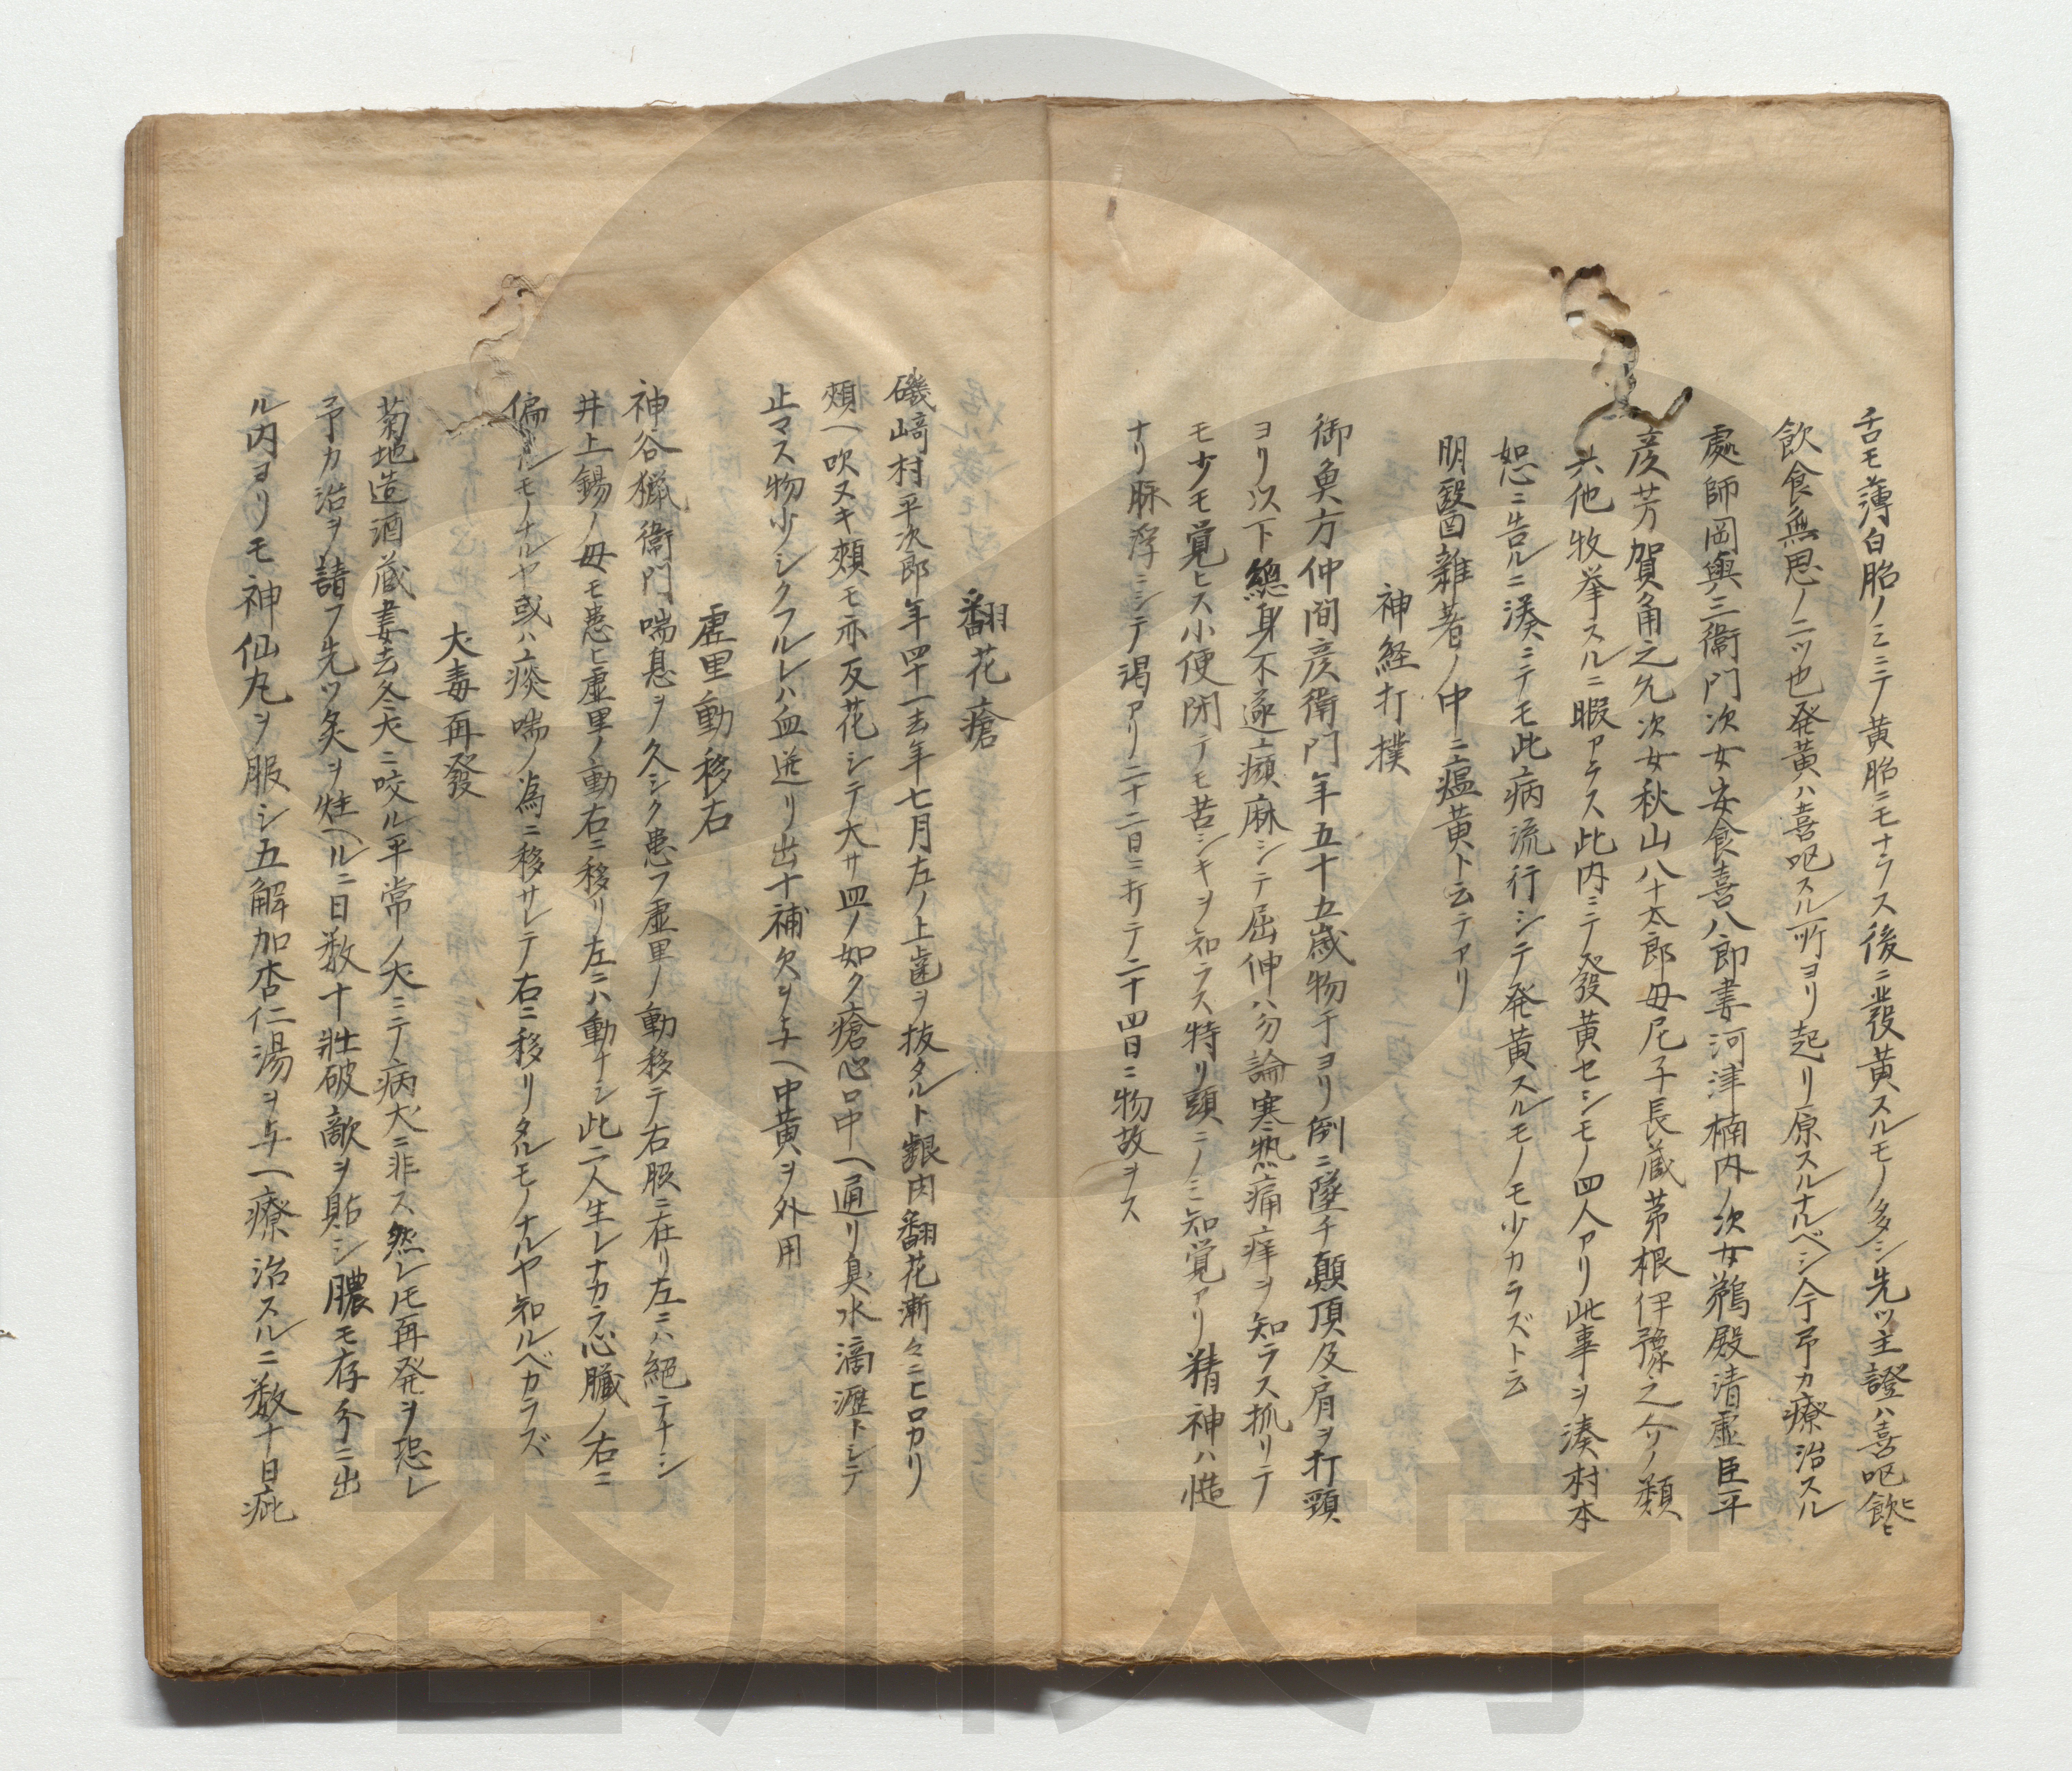 舌モ薄白胎ノミニテ黄胎ニモナラス後ニ発黄スルモノ多シ先ツ主證ハ喜呕飲ヒ
飲食無思ノ二ツ也発黄ハ喜呕スル所ヨリ起リ原スルナルベシ今予カ療治スル
處師岡與三衞門次女安食喜八郎妻河津楠内ノ次女鵜殿清虚臣平
彦芳賀角之允次女秋山八十太郎母尼子長蔵茅根伊豫之介ノ類
其他牧挙スルニ暇アラス此内ニテ發黄セシモノ四人アリ此事ヲ湊村本
恕ニ告ルニ湊ニテモ此病流行シテ発黄スルモノモ少カラズト云
明醫雑著ノ中ニ瘟黄ト云テアリ
神経打撲
御奥方仲間彦衛門年五十五歳物干ヨリ倒ニ墜チ顛頂及肩ヲ打頸
ヨリ以下總身不遂㿗麻シテ屈伸ハ勿論寒熱痛痒ヲ知ラス抓リテ
モ少モ覚ヒス小便閉テモ苦シキヲ知ラス特リ頭ニノミ知覚アリ精神ハ慥
ナリ脉浮ニシテ渇アリ二十二日ニ打テ二十四日ニ物故ヲス
翻花瘡
磯﨑村平次郎年四十一去年七月左ノ上歯ヲ抜タルト齦肉翻花漸々ニヒロカリ
頬ヘ吹ヌキ頬モ亦反花シテ大サ皿ノ如ク瘡心口中ヘ通リ臭水滴瀝トシテ
止マス物少シクフルレハ血迸リ出十補欠ヲ与ヘ中黄ヲ外用
虚里動移右
神谷猟衞門喘息ヲ久シク患フ虚里ノ動移テ右脇ニ在リ左ニハ絕テナシ
井上錫ノ母モ患ヒ虚里ノ動右ニ移リ左ニハ動ナシ此二人生レナカラ心臓ノ右ニ
偏ルモノナルヤ或ハ痰喘ノ為ニ移サレテ右ニ移リタルモノナルヤ知ルベカラズ
犬毒再發
菊地造酒蔵妻去冬犬ニ咬ル平常ノ犬ニテ病犬ニ非ス然レモ再発ヲ恐レ
予カ治ヲ請フ先ツ灸ヲ炷ヘルニ日数十壯破敵ヲ貼シ膿モ存分ニ出
ル内ヨリモ神仙丸ヲ服シ五解加杏仁湯ヲ与ヘ療治スルニ数十日疵
香川大学